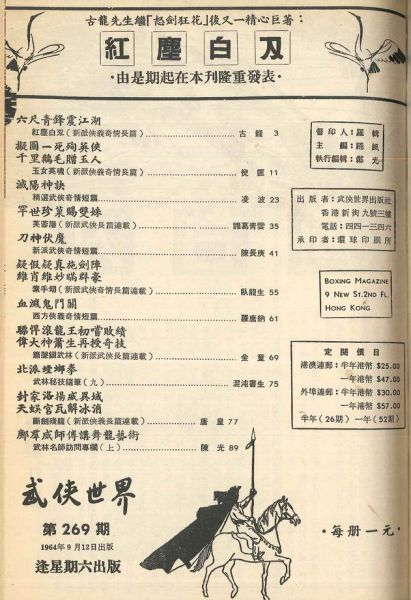 古龍先生繼「怒劍狂花」後又一精心巨著：
紅塵白刃
·由是期起在本刊隆重發表·
六尺青鋒震江湖
紅塵白刃（新派俠義奇情長篇）……古龍 3
擬圖一死殉英俠
千里鵝毛贈玉人
玉女英魂（新派俠義奇情長篇）……倪匡 11
滅陽神訣
精選武俠奇情短篇……凌波 23
罕世珍菓賜雙姝
芙蓉劍（新派武俠長篇連載）……諸葛青雲 35
刀神伏魔
新派武俠奇情短篇……陳長庚 41
疑假疑真施劍陣
維肖維妙瞞群豪
素手劫（新派俠義奇情長篇連載）……臥龍生 55
血濺鬼門關
西方俠義奇情短篇……羅唐納 61
驕悍滾龍王初嘗敗績
偉大神簫生再授奇技
簫聲鎮武林（新派俠義奇情長篇連載）……金童 69
北派螳螂拳
武林秘技隨筆（九）……混沌書生 75
封家洛揚威異域
天娛宮瓦解冰消
斷劍殘龍（新派俠義長篇連載）……唐皇 77
鄺羣威師傅講舞龍藝術
武林名師訪問專欄（上）……陳光 89
督印人：羅輯
主編：羅風
執行編輯：鄭光
出版者：武俠世界出版社
香港新街九號三樓
電話：四四一三四六
承印者：環球印刷所
BOXING MAGAZINE
9 NEW ST. 2ND FL.
HONG KONG
定閱價目
港澳連郵：半年港幣 $25.00
一年港幣 $47.00
外埠連郵：半年港幣 $30.00
一年港幣 $57.00
半年（26期）一年（52期）
武俠世界
第269期
1964年9月12日出版
逢星期六出版
·每册一元·